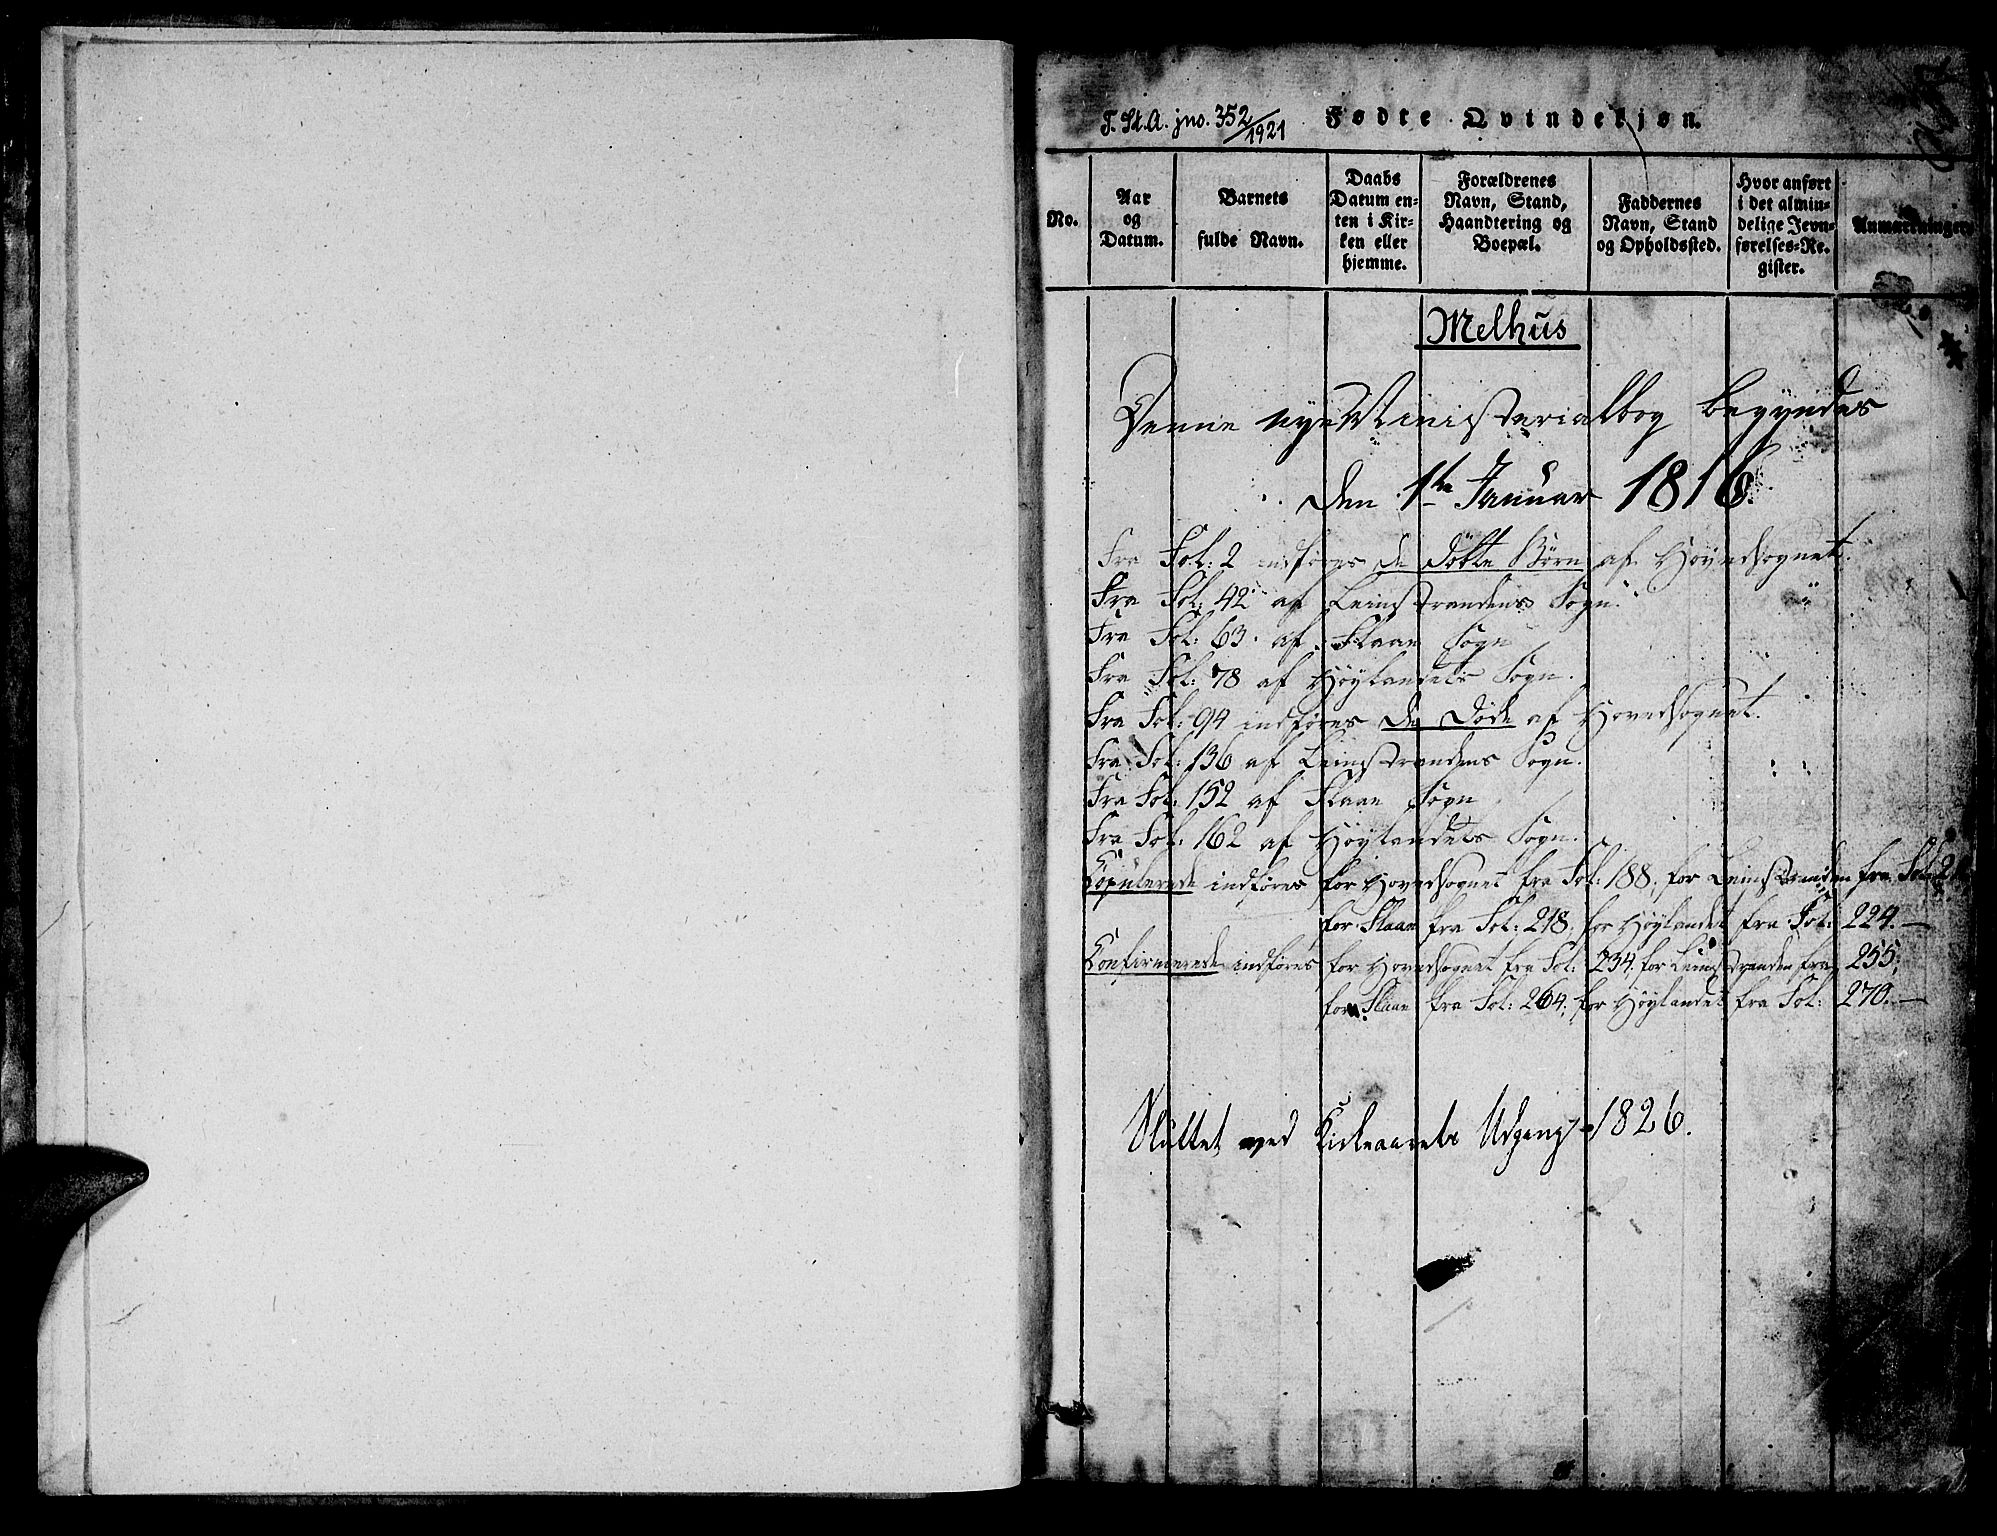 T. St. A. jno. 352/1921 Fødte Qvindekjøn.
No.
Aar og Datum.
Barnets fulde Navn.
Daabs Datum enten i Kirken eller hjemme.
Forældrenes Navn, Stand, Haandtering og Boepæl.
Faddernes Navn, Stand og Opholdssted.
Hvor anført i det almindelige Jevnførelses-Register.
Anmærkninger.
Melhus
Denne nye Ministerialbog begyndes
den 1te Januar 1816.
Fra Fol: 2 indføres de døbte Børn af Hovedsognet.
Fra Fol: 42 af Leinstrandens Sogn.
Fra Fol: 63. af Flaae Sogn
Fra Fol: 78 af Høylandets Sogn.
Fra Fol: 94 indføres de Døde af Hovedsognet.
Fra Fol: 136 af Leinstrandens Sogn.
Fra Fol: 152 af Flaae Sogn
Fra Fol: 162 af Høylandets Sogn.
Copulerede indføres for Hovedsognet fra Fol: 188, for Leinstranden fra Fol:
for Flaae fra Fol: 218, for Høylandet fra Fol: 224.—
Confirmerede indføres for Hovedsognet fra Fol: 234, for Leinstranden fra 255,
for Flaae fra Fol: 264, for Høylandet fra Fol: 270.—
Sluttet med Kirkeaarets Udgang 1826.